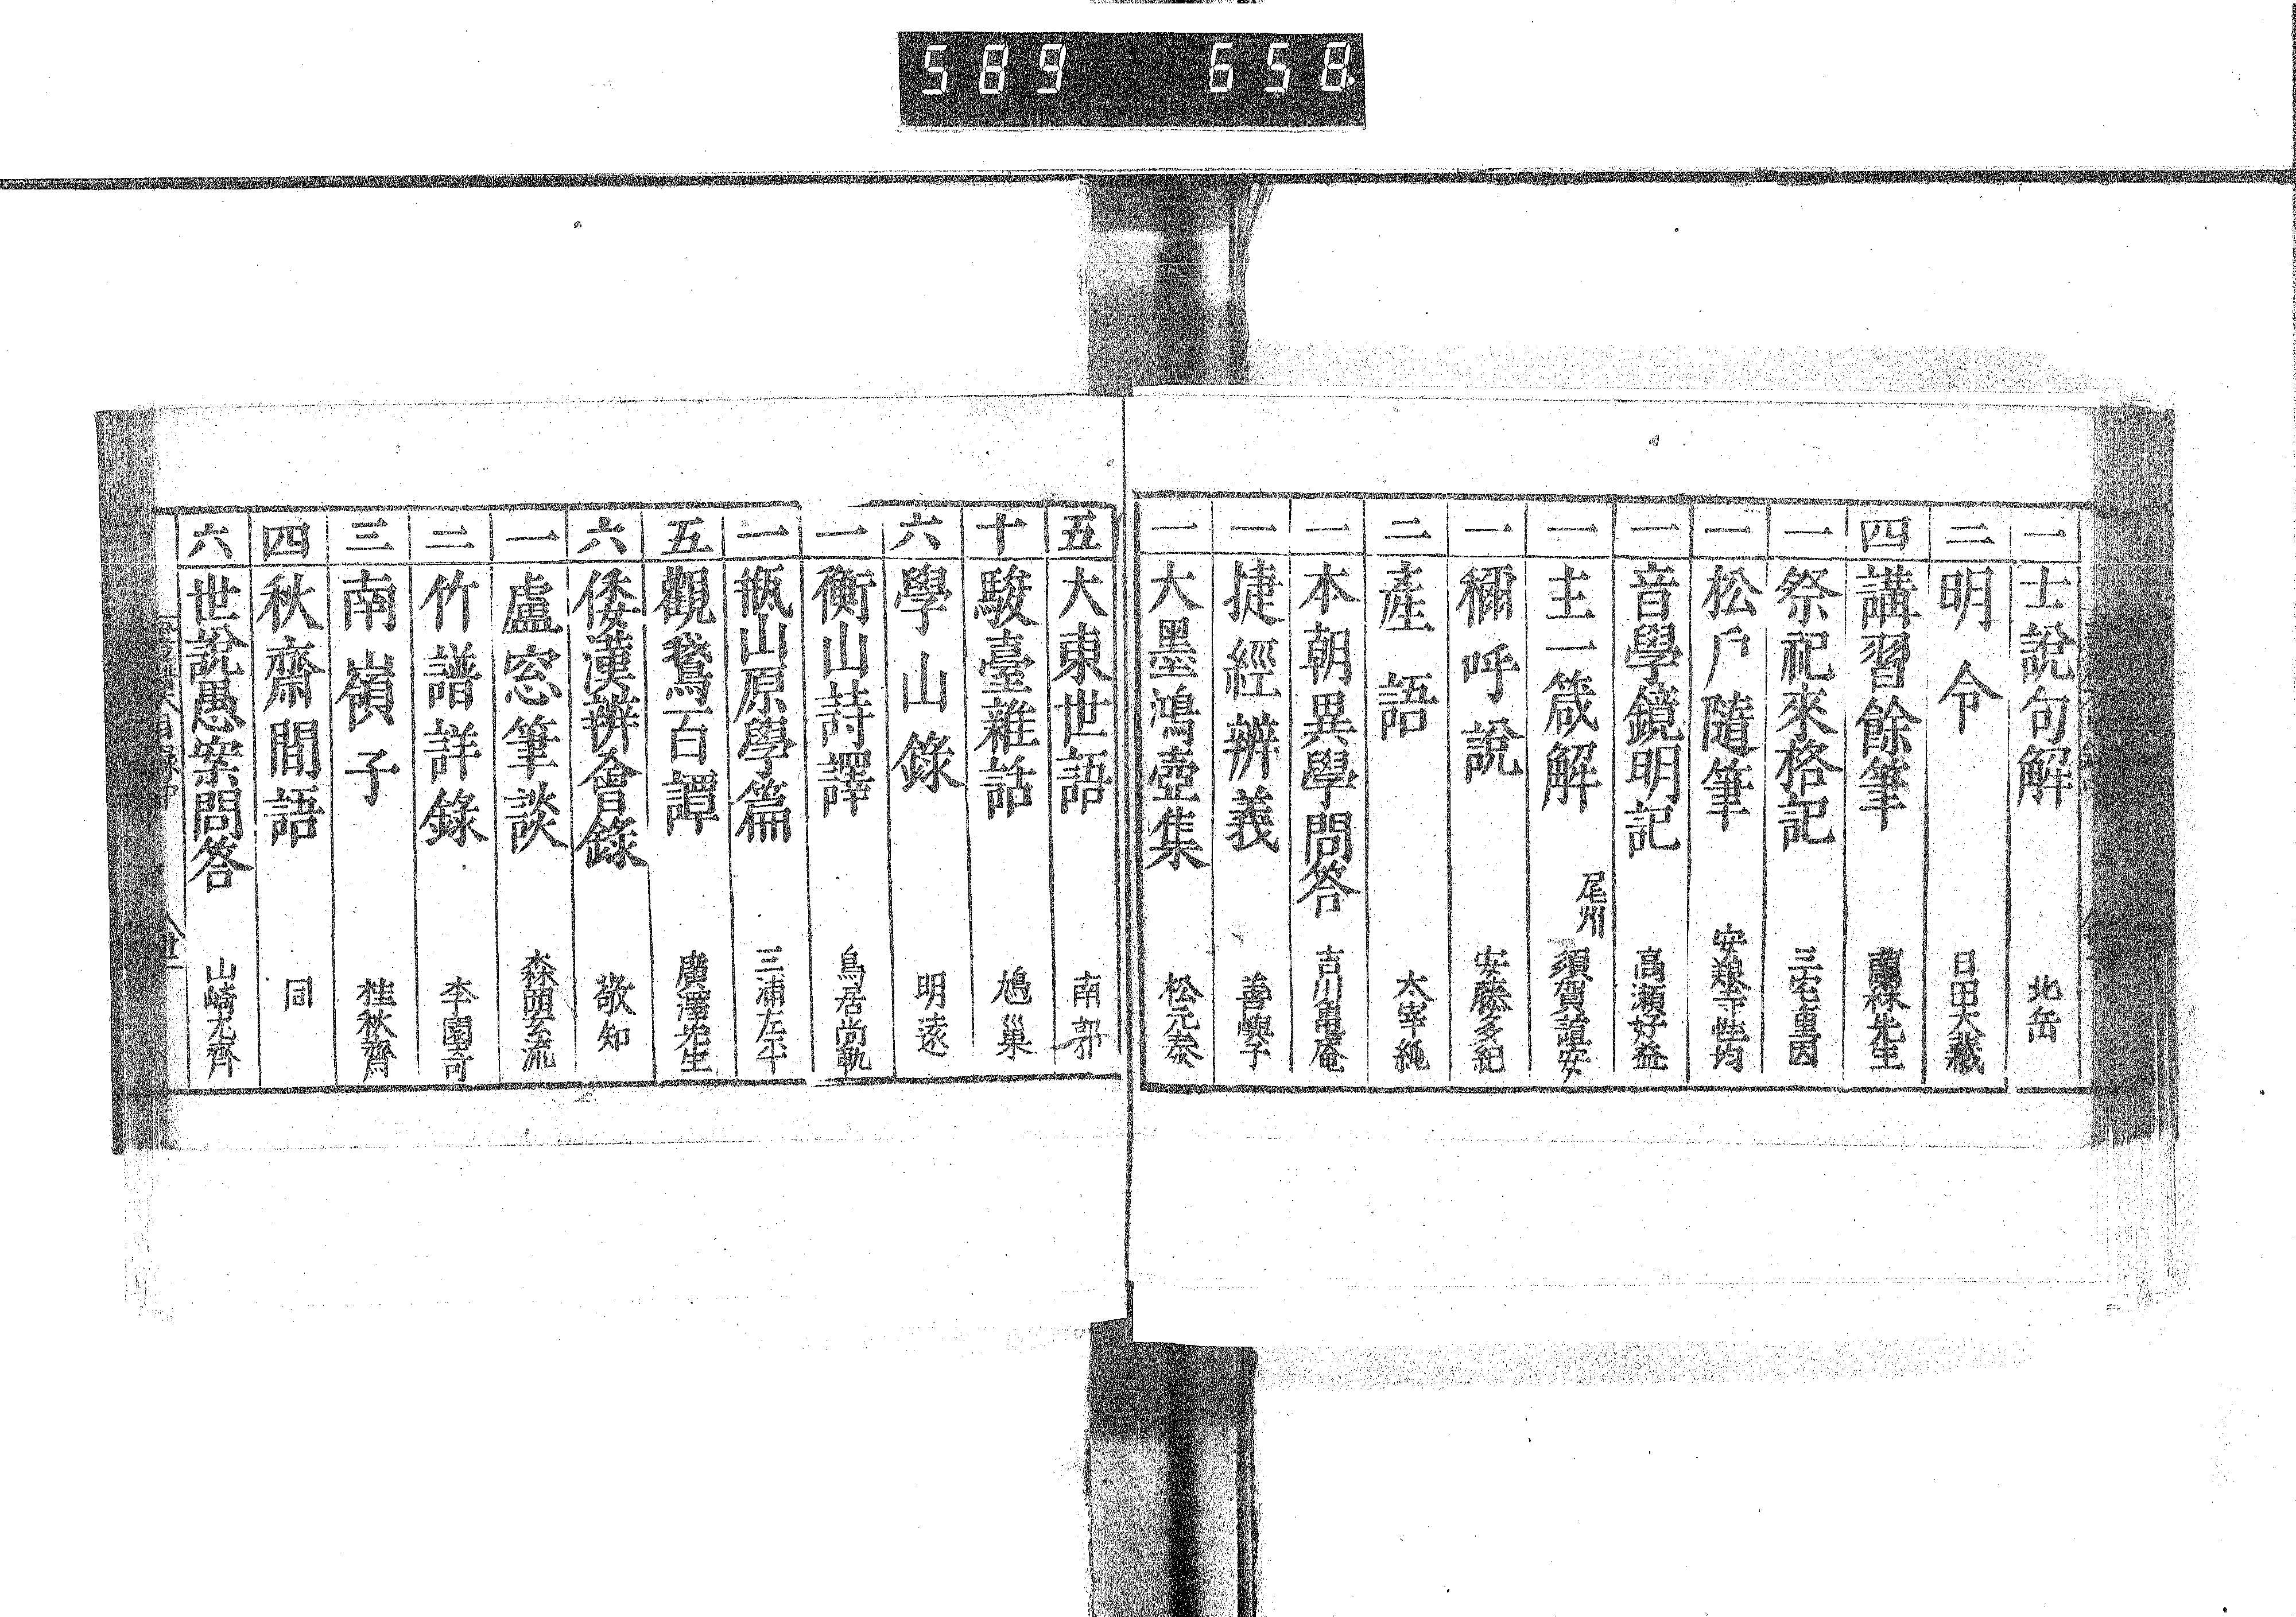 589 658.
一 士說句解 北岳
二 明令 日田大藏
四 講習餘筆 蘭林先生
一 祭祀來格記 三宅重因
一 松戶隨筆 安
一 音學鏡明記 高瀬好益
一 主一箴解 尾州 須賀誼安
一 穪呼說 安藤多紀
二 產語 太宰純
一 本朝異學問答 吉川亀庵
一 捷經辨義 善
一 大墨鴻壺集 松元泰
五 大東世語 南郭
十 駿臺雜話 鳩巢
六 學山錄 明遠
一 衡山詩譯 鳥居尚軌
一 瓶山原學篇 三浦左平
五 觀鵞百譚 廣澤先生
六 倭漢辨會錄 敬知
一 盧窓筆談 森岡玄流
二 竹譜詳錄 李園奇
三 南嶺子 桂秋齋
四 秋齋間語 同
六 世說愚案問答 山崎尤齊